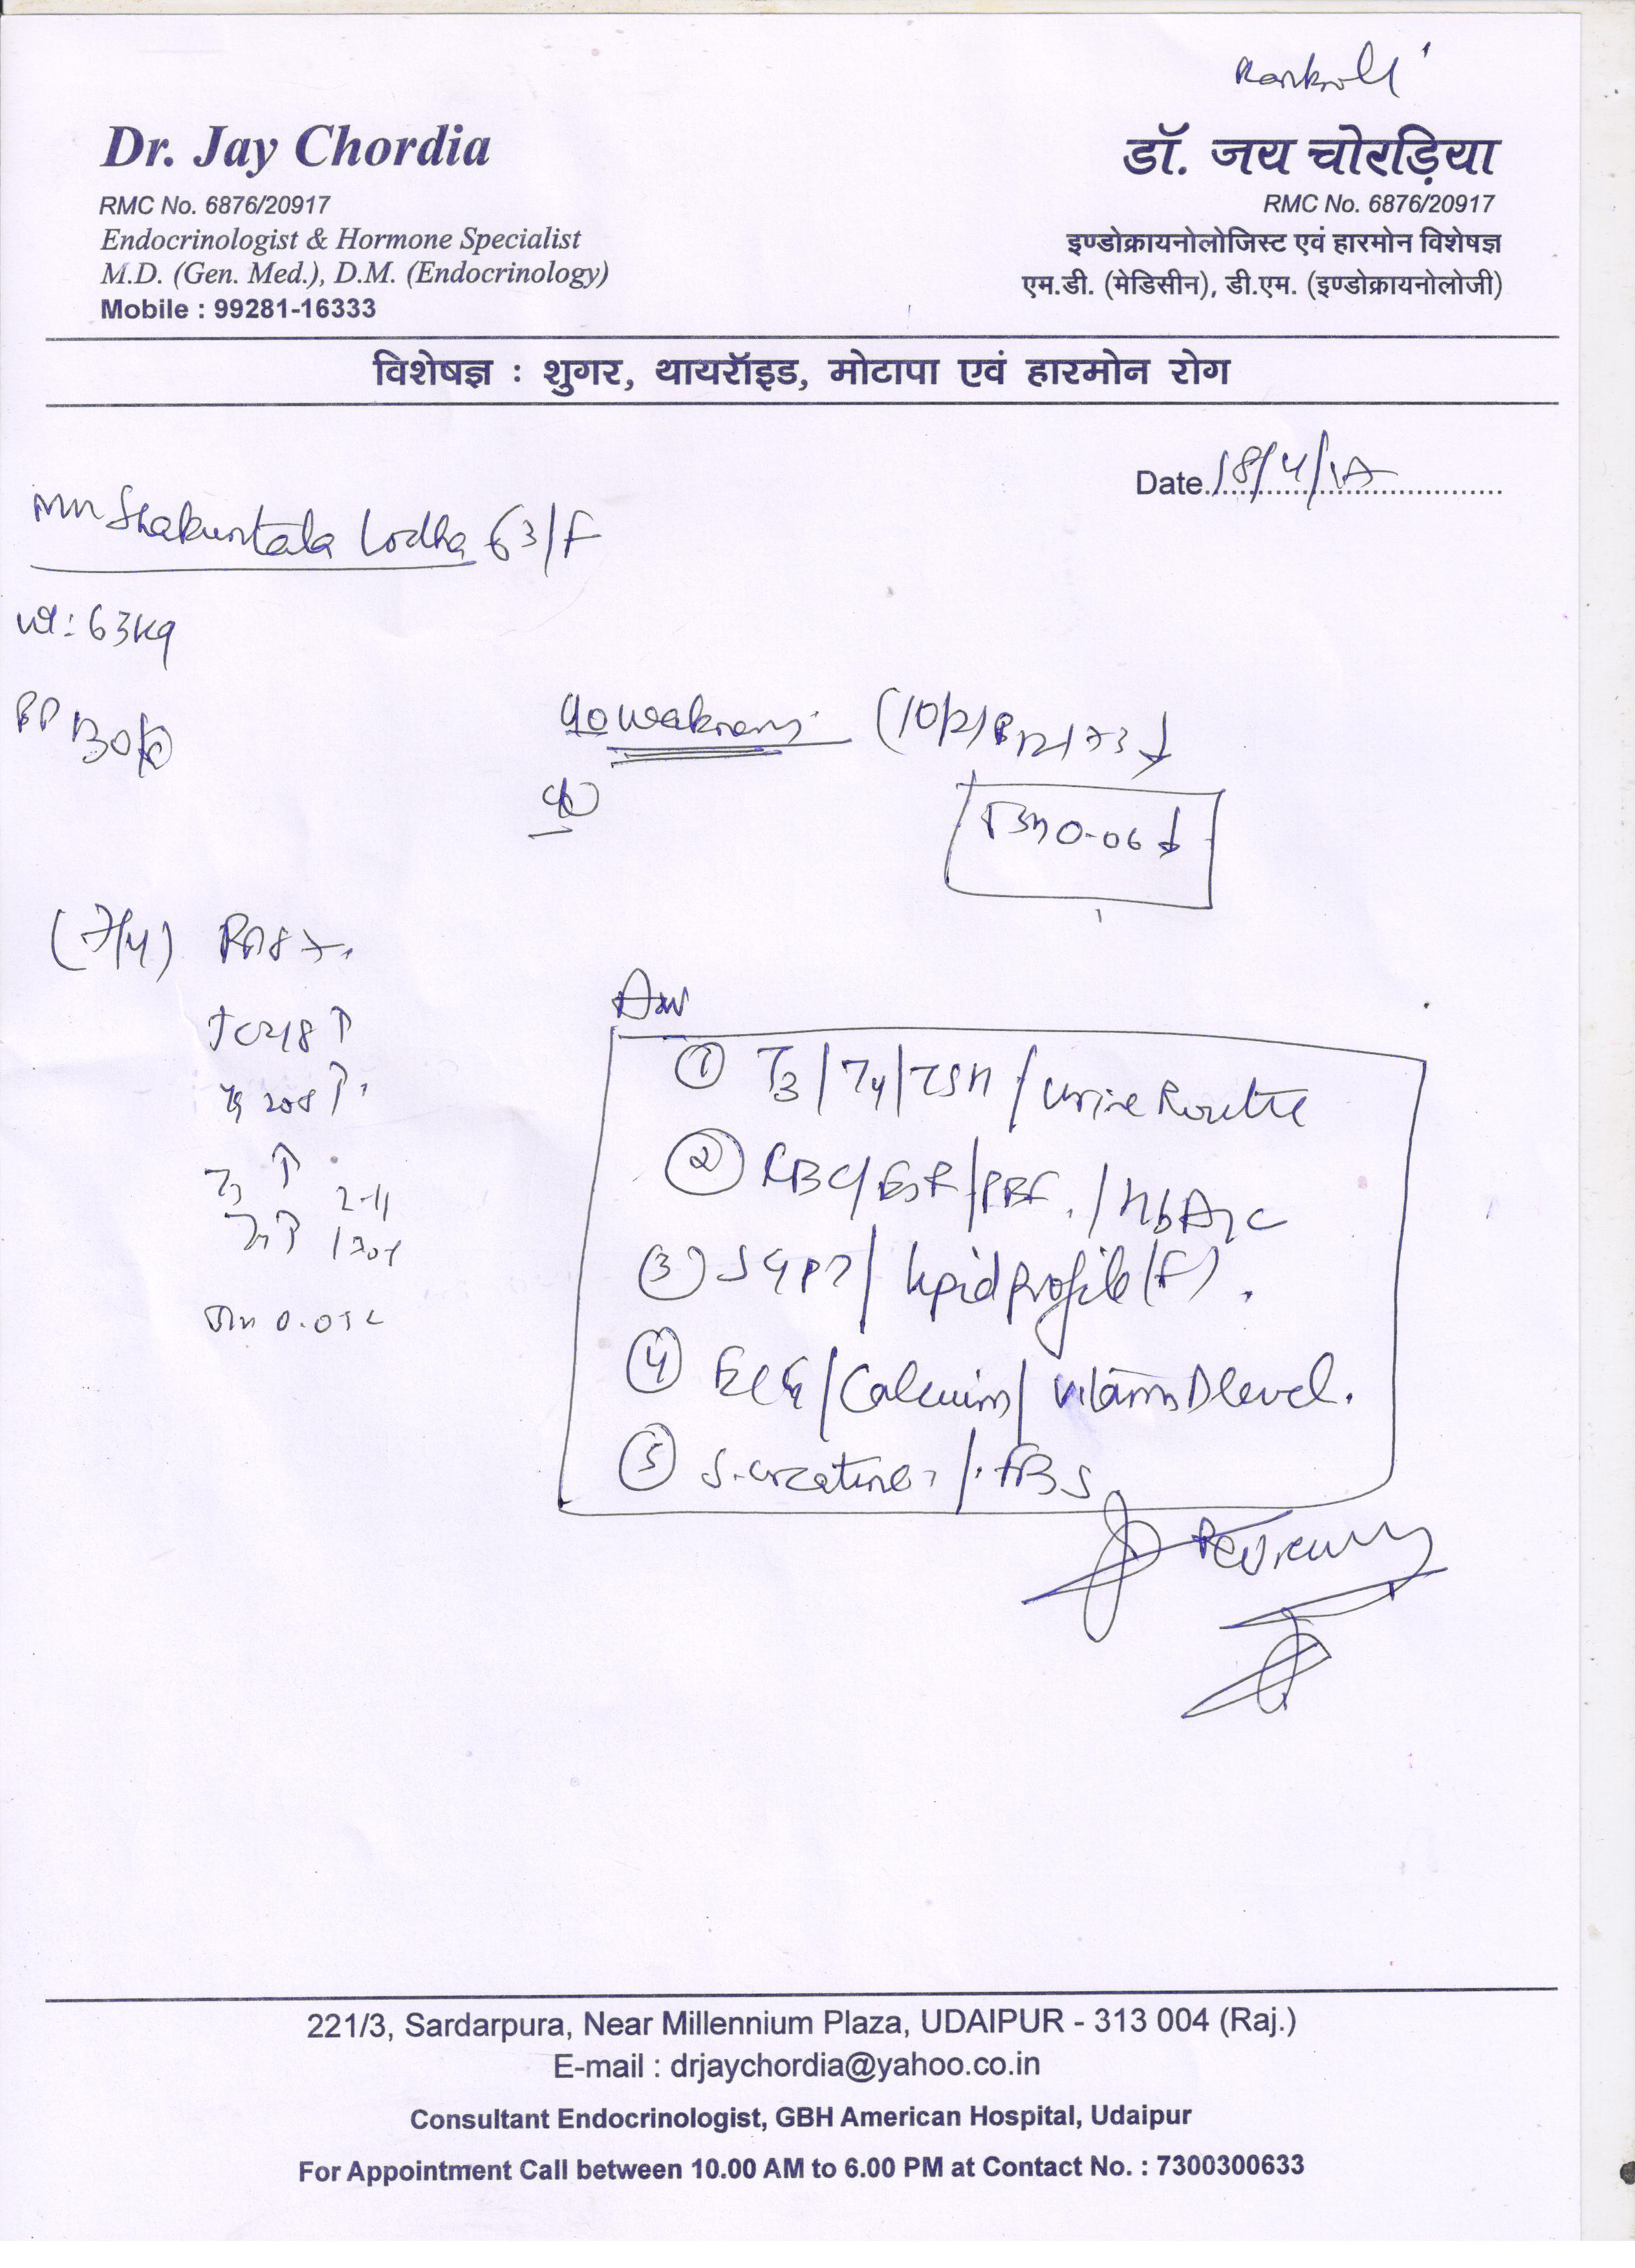 Dr. Jay Chordia
RMC No. 6876/20917
Endocrinologist & Hormone Specialist
M.D. (Gen. Med.), D.M. (Endocrinology)
Mobile : 99281-16333
डॉ. जय चोरड़िया
RMC No. 6876/20917
इण्डोक्रायनोलोजिस्ट एवं हारमोन विशेषज्ञ
एम.डी. (मेडिसीन), डी.एम. (इण्डोक्रायनोलोजी)
विशेषज्ञ : शुगर, थायरॉइड, मोटापा एवं हारमोन रोग
Date 18/4/17
Shakuntala Lodha 63/F
wt: 63kg
BP 130/
weakness (10/2) B12 173 ↓
TSH 0.06 ↓
(7/4) RBS
↑
↑
T3 ↑ 2.11
T4 ↑
① T3/T4/TSH/Urine Routine
② CBC/ESR/PBF/HbA1c
③ SGPT/lipid profile (F).
④ ECG/Calcium/Vitamin D level.
⑤ S.creatinine/FBS
221/3, Sardarpura, Near Millennium Plaza, UDAIPUR - 313 004 (Raj.)
E-mail : drjaychordia@yahoo.co.in
Consultant Endocrinologist, GBH American Hospital, Udaipur
For Appointment Call between 10.00 AM to 6.00 PM at Contact No. : 7300300633